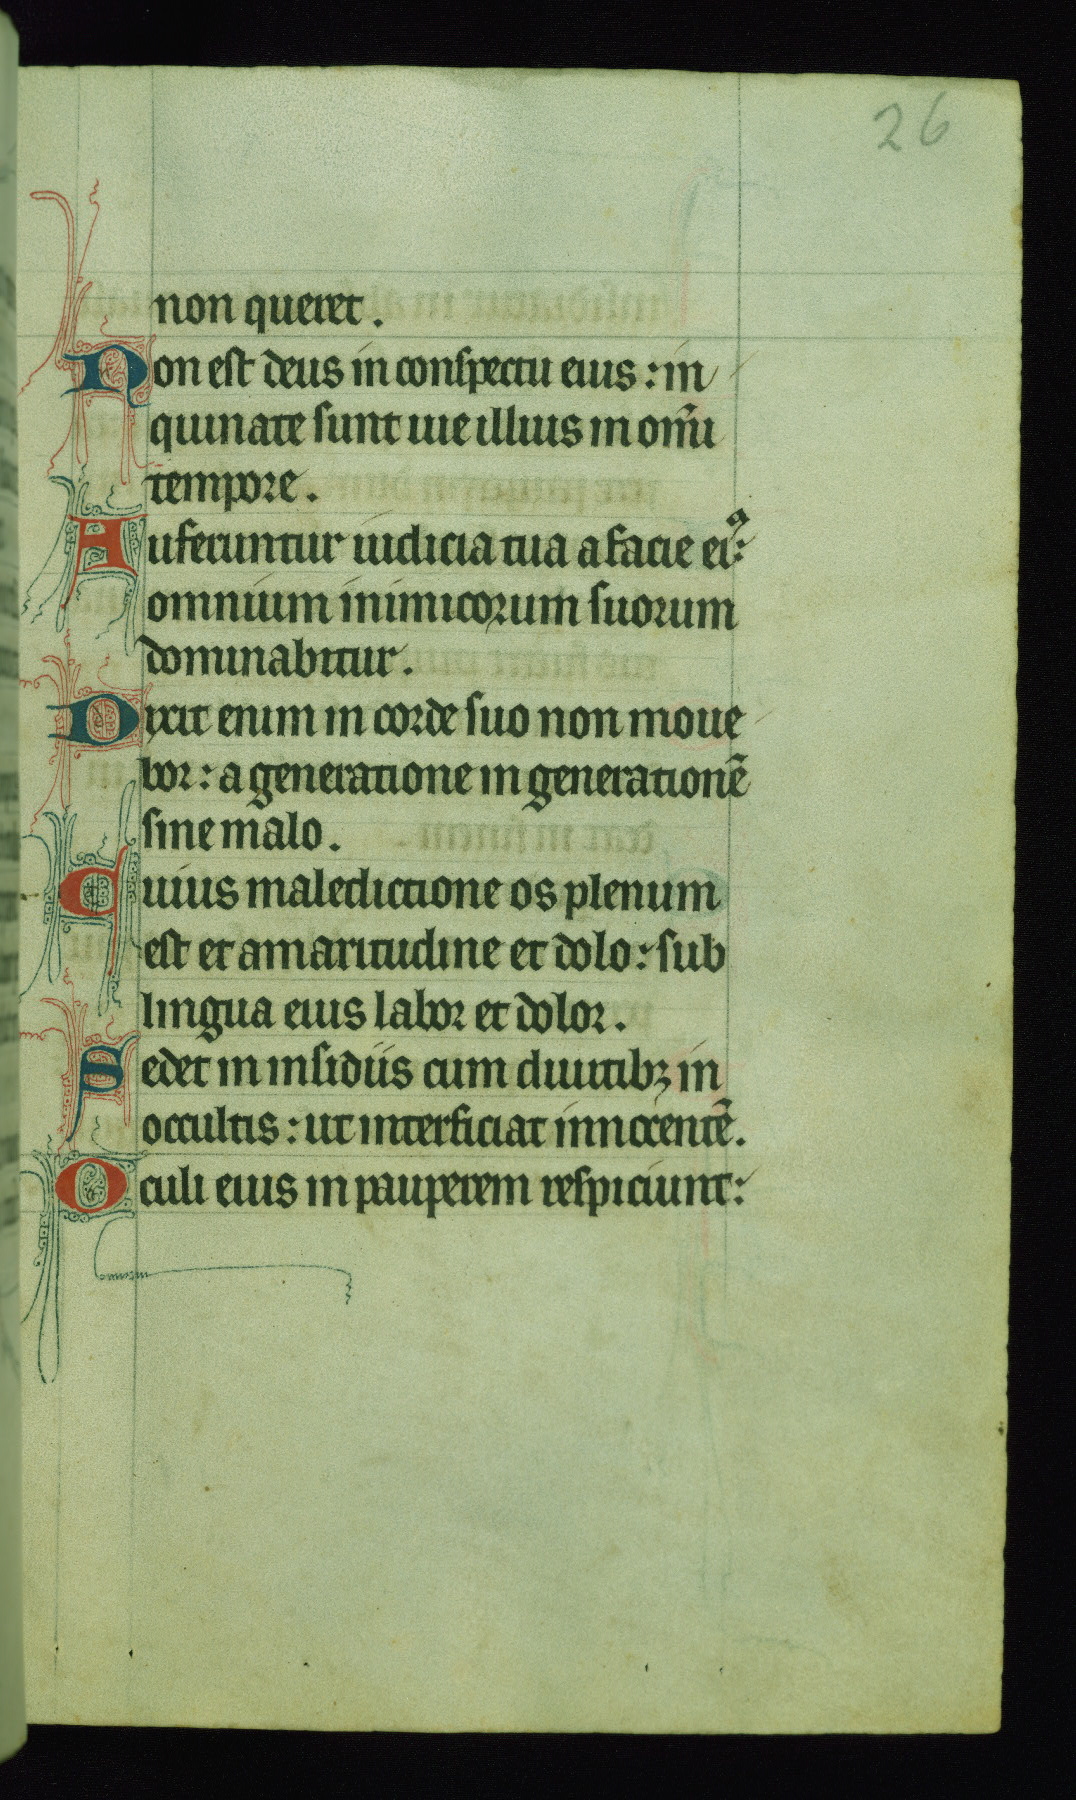 26
non queret.
Non est deus in conspectu eius: in
quinate sunt uie illius in om̄i
tempore.
Auferuntur iudicia tua a facie eiꝰ:
omnium inimicorum suorum
dominabitur.
Dixit enim in corde suo non moue
bor: a generatione in generationē
sine malo.
Cuius maledictione os plenum
est et amaritudine et dolo: sub
lingua eius labor et dolor.
Sedet in insidiis cum diuitibꝫ in
occultis: ut interficiat innocentē.
Oculi eius in pauperem respiciunt: